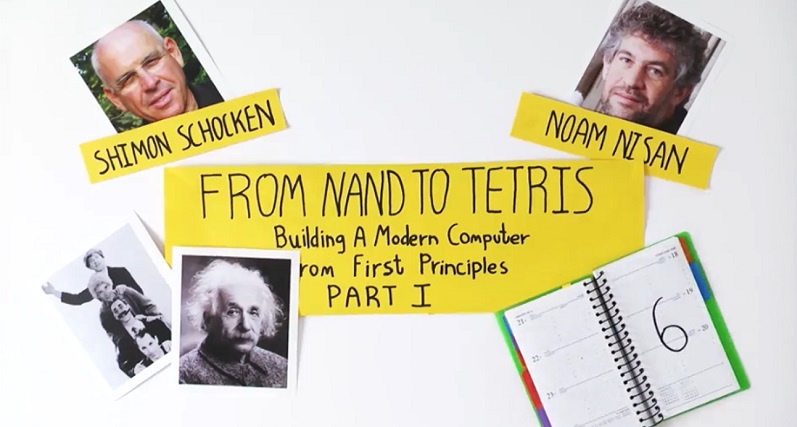 SHIMON SCHOCKEN
NOAM NISAN
FROM NAND TO TETRIS
Building A Modern Computer
rom First Principles
PART I
18
19
20
21
22
23
6